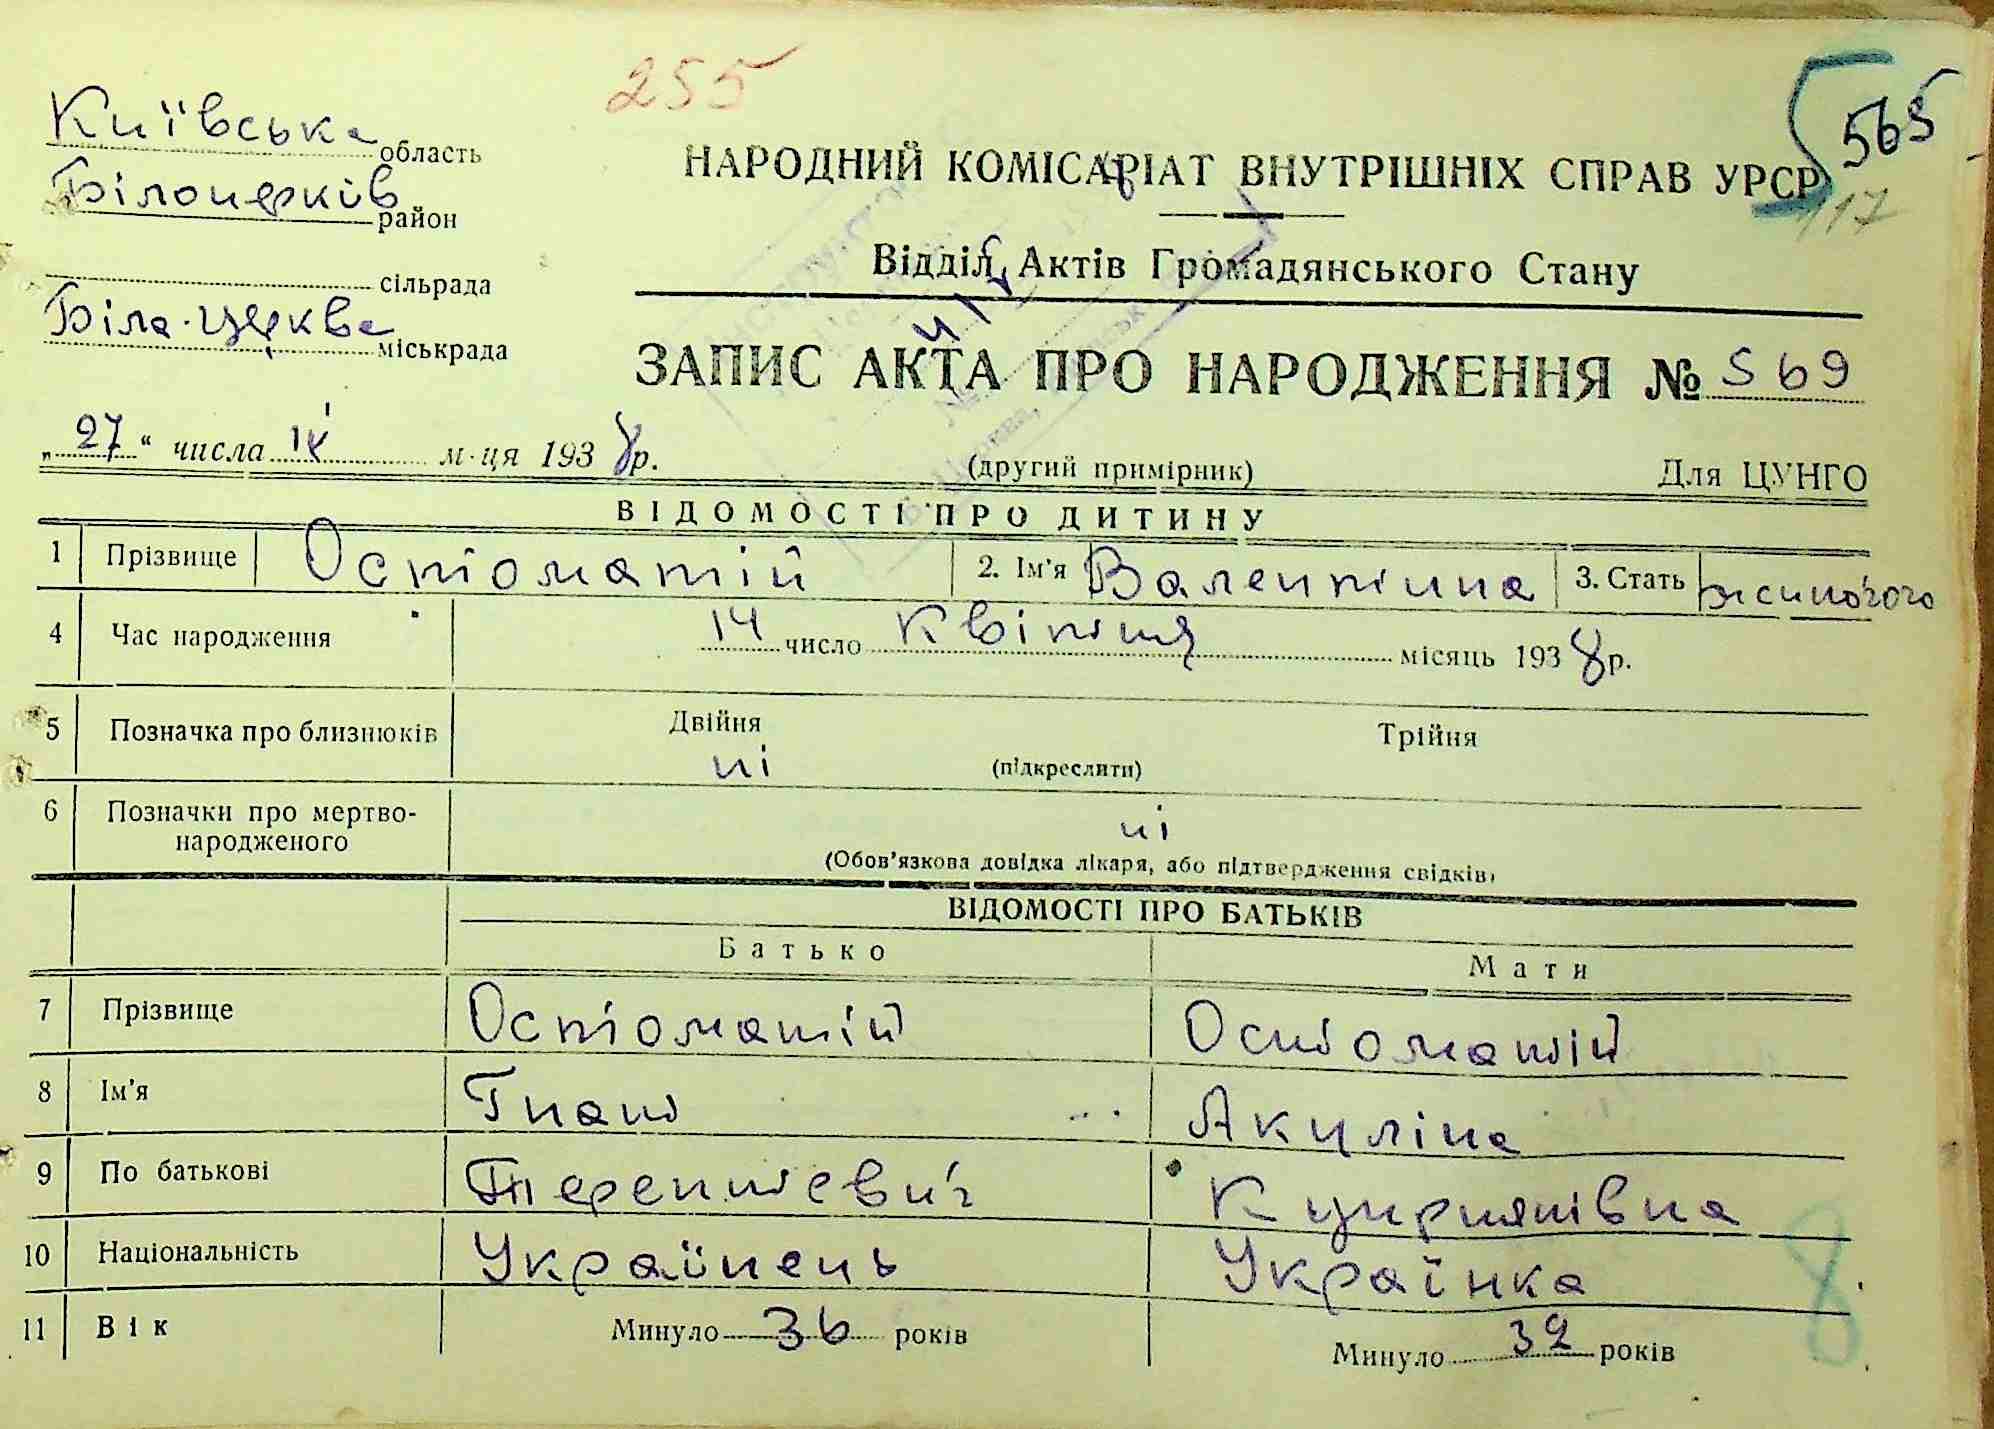 255
565
117
Київська область
Білоцерків район
сільрада
Біла-Церква міськрада
НАРОДНИЙ КОМІСАРІАТ ВНУТРІШНІХ СПРАВ УРСР
Відділ Актів Громадянського Стану
ЗАПИС АКТА ПРО НАРОДЖЕННЯ № 569
„27“ числа IV м-ця 1938 р.
(другий примірник) Для ЦУНГО
ВІДОМОСТІ ПРО ДИТИНУ
1 Прізвище Остоматій 2. Ім'я Валентина 3. Стать жиночого
4 Час народження 14 число Квітня місяць 1938 р.
5 Позначка про близнюків Двійня Трійня
ні (підкреслити)
6 Позначки про мертво-
народженого ні
(Обов'язкова довідка лікаря, або підтвердження свідків)
ВІДОМОСТІ ПРО БАТЬКІВ
Батько Мати
7 Прізвище Остоматій Остоматій
8 Ім'я Гнат Акуліна
9 По батькові Терентєвич Купріянівна
10 Національність Українець Українка
11 Вік Минуло 36 років Минуло 32 років
8